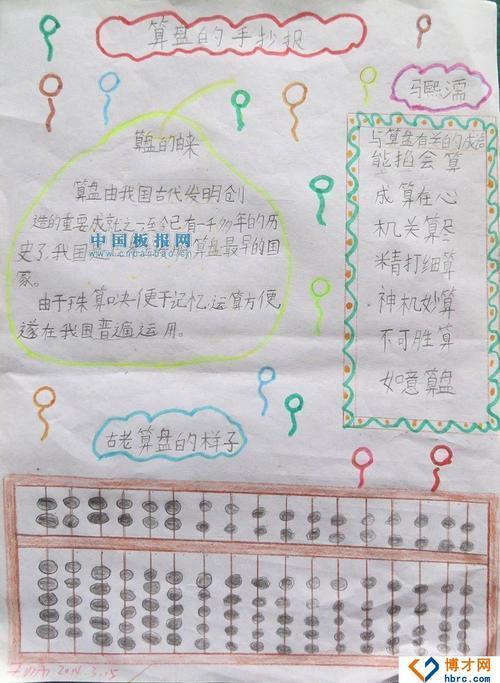 算盘的手抄报
马熙濡
算盘的由来
算盘由我国古代发明创
造的重要成就之一至今已有一千多年的历
史了,我国
算盘最早的国
家。
由于珠算口诀便于记忆,运算方便,
遂在我国普遍运用。
中国板报网
www.cnbanbao.cn
与算盘有关的成语
能掐会算
成算在心
机关算尽
精打细算
神机妙算
不可胜算
如意算盘
古老算盘的样子
2014.3.15
博才网
hbrc.com